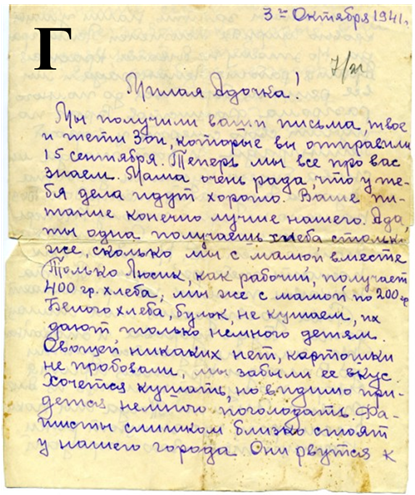 3го Октября 1941г.
Г
7/XI
Милая Адочка!
Мы получили ваши письма, твое
и тети Зои, которые вы отправили
15 сентября. Теперь мы все про вас
знаем. Мама очень рада, что у те-
бя дела идут хорошо. Ваше пи-
тание конечно лучше нашего. Ада
ты одна получаешь хлеба столько
же, сколько мы с мамой вместе
Только Люсик, как рабочий, получает
400 гр. хлеба, мы же с мамой по 200 гр
Белого хлеба, булок, не кушаем, их
дают только немного детям.
Овощей никаких нет, картошки
не пробовали, мы забыли ее вкус.
Хочется кушать, но видимо при-
дется немного поголодать. Фа-
шисты слишком близко стоят
у нашего города. Они рвутся к